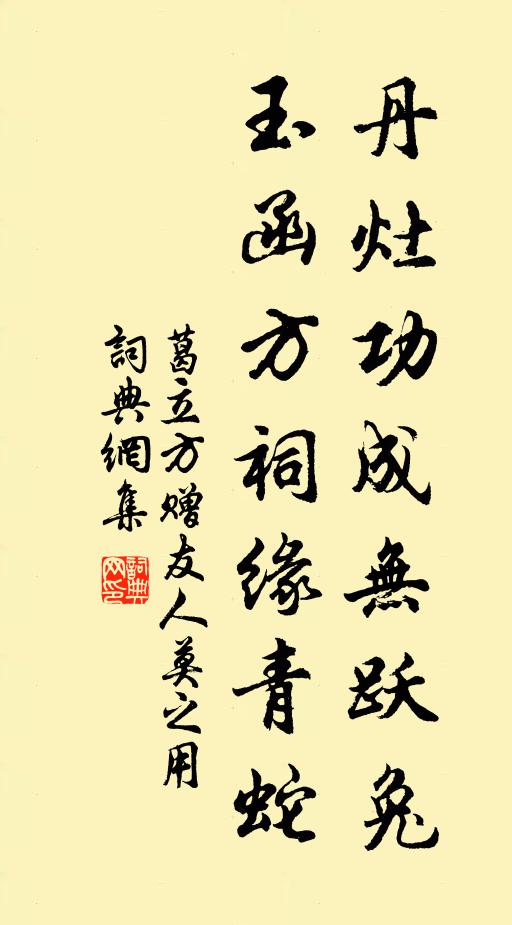 丹灶功成無跃兔
玉函方祠缘青蛇
葛立方赠友人莫之用
詞典網集
詞典網印